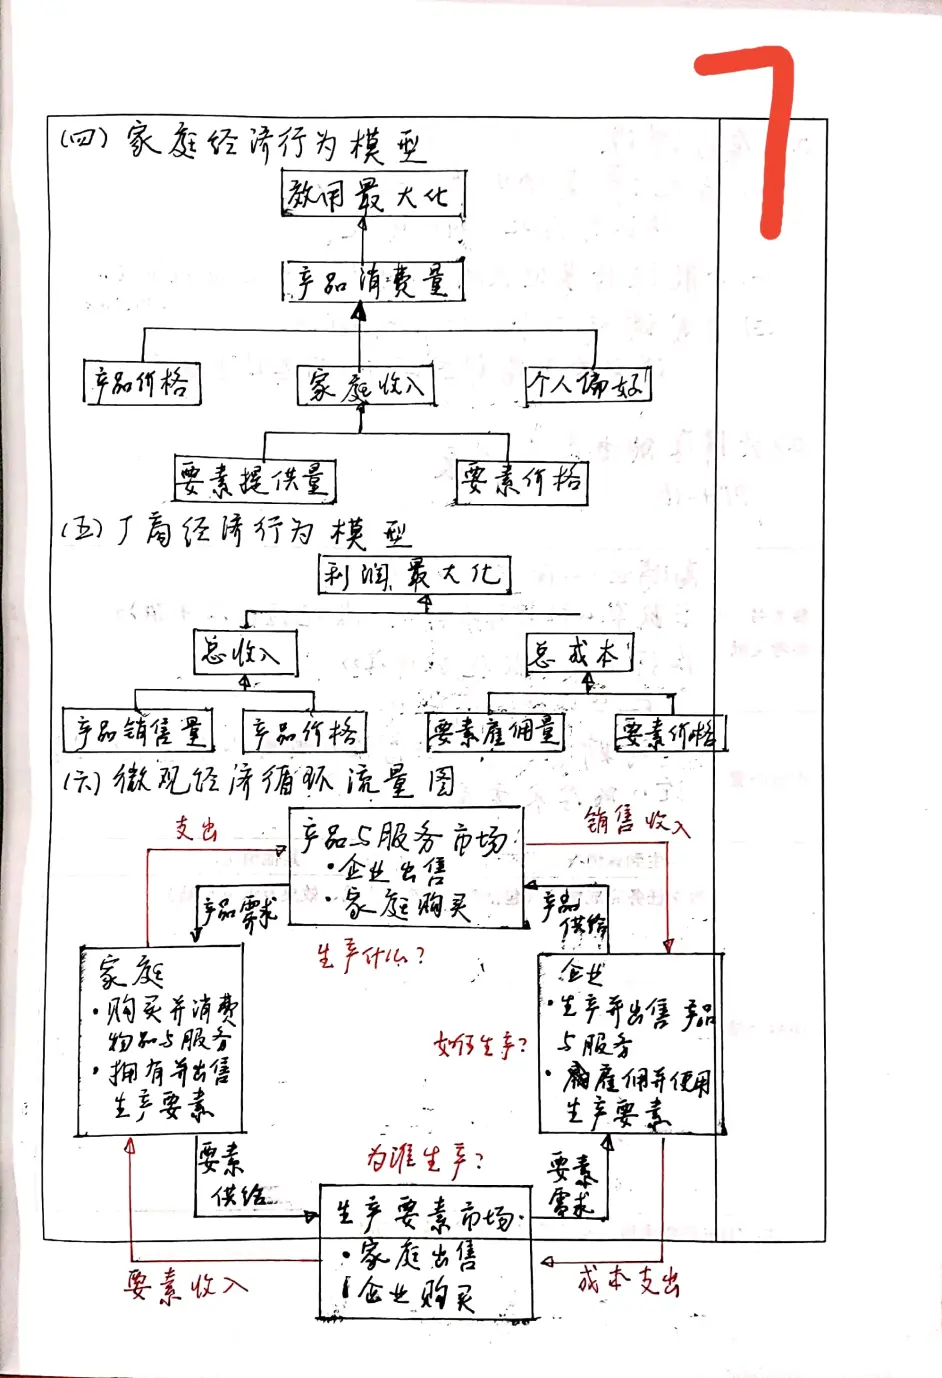 7
(四) 家庭经济行为模型
效用最大化
产品消费量
产品价格
家庭收入
个人偏好
要素提供量
要素价格
(五) 厂商经济行为模型
利润最大化
总收入
总成本
产品销售量
产品价格
要素雇佣量
要素价格
(六) 微观经济循环流量图
支出
产品与服务市场:
·企业出售
·家庭购买
销售收入
产品需求
产品
供给
生产什么?
家庭
·购买并消费
物品与服务
·拥有并出售
生产要素
如何生产?
企业
·生产并出售产品
与服务
·雇佣并使用
生产要素
要素
供给
为谁生产?
要素
需求
生产要素市场:
·家庭出售
企业购买
要素收入
成本支出